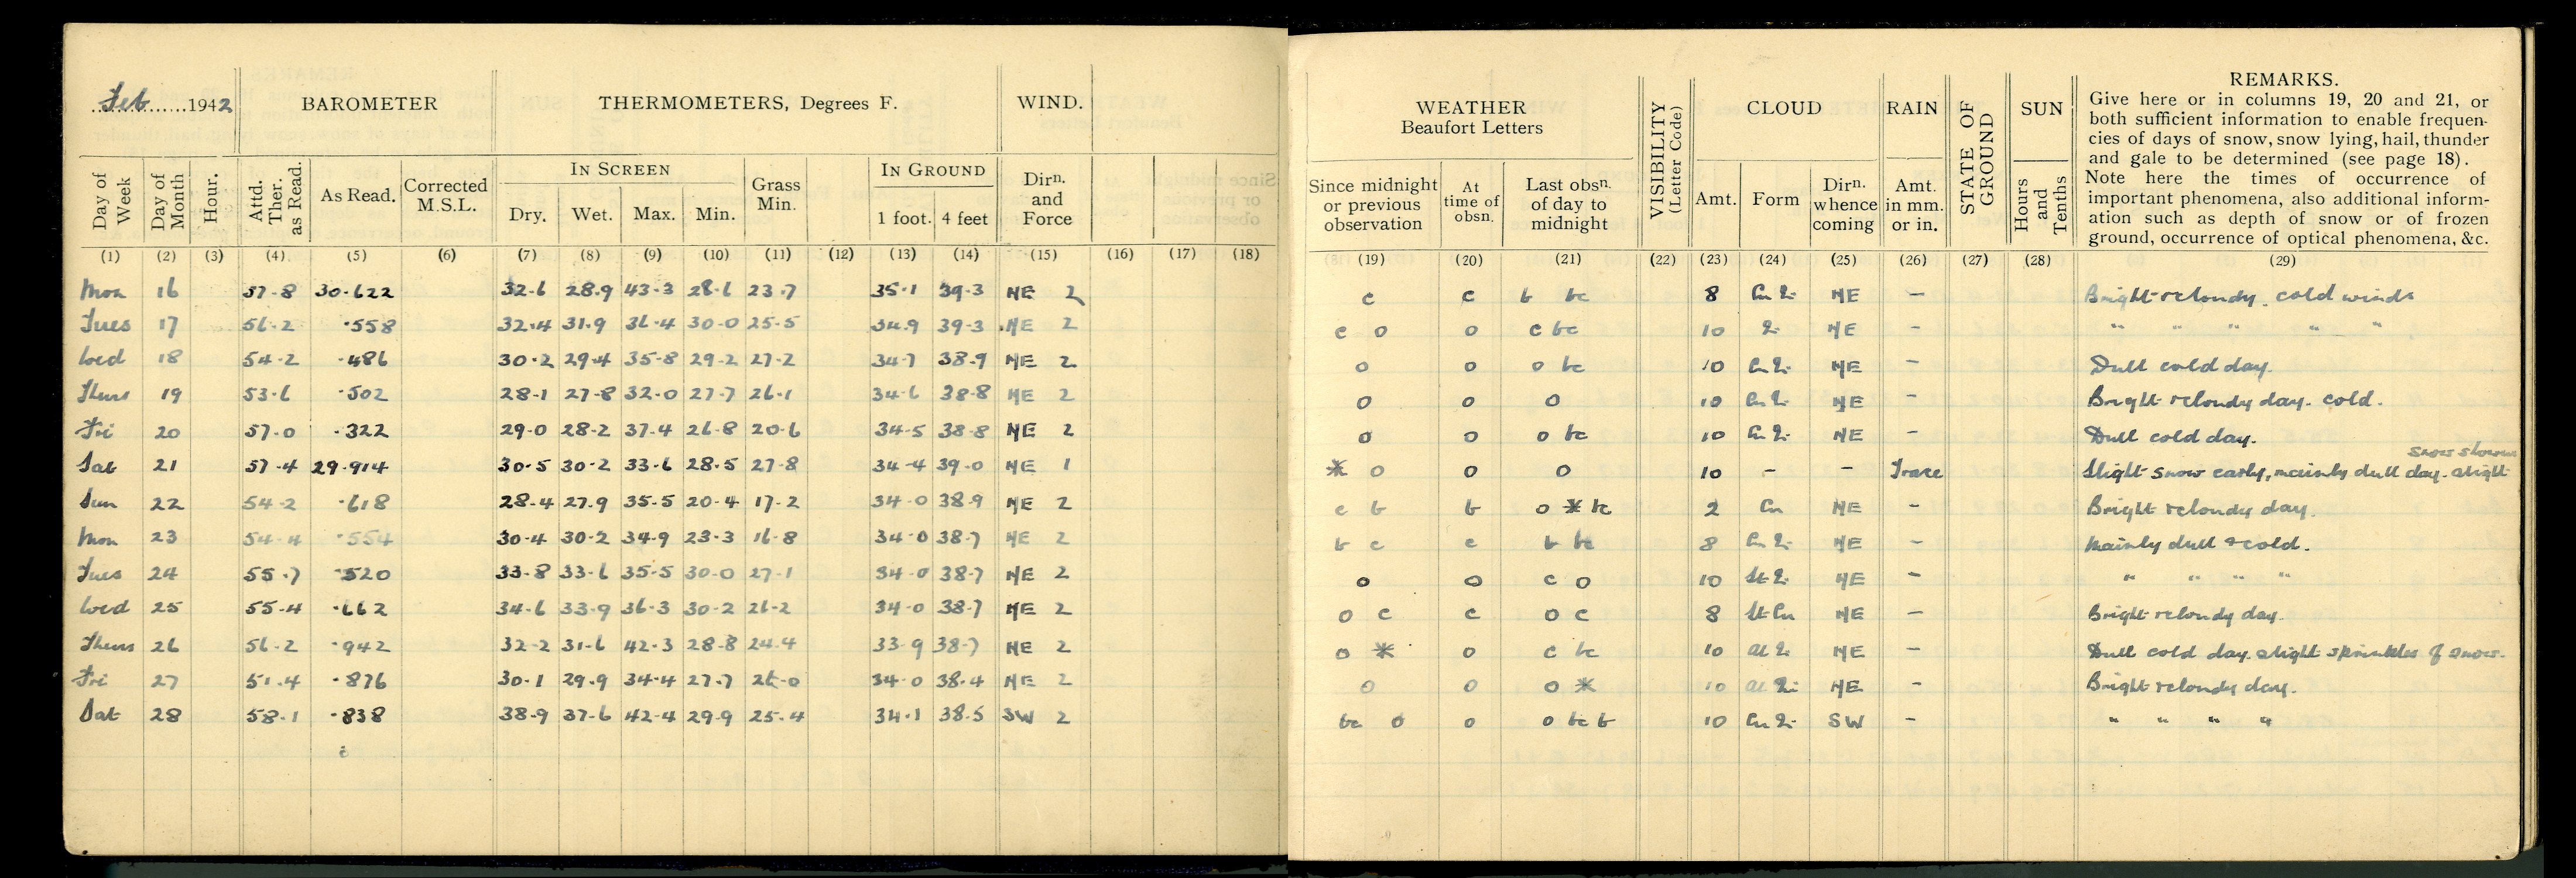 Feb 1942 BAROMETER THERMOMETERS, Degrees F. WIND.
Day of Week Day of Month Hour. Attd. Ther. as Read. As Read. Corrected M.S.L. IN SCREEN Dry. Wet. Max. Min. Grass Min. IN GROUND 1 foot. 4 feet Dirn. and Force
(1) (2) (3) (4) (5) (6) (7) (8) (9) (10) (11) (12) (13) (14) (15) (16) (17) (18)
Mon 16 57.8 30.622 32.6 28.9 43.3 28.6 23.7 35.1 39.3 NE 2
Tues 17 56.2 .558 32.4 31.9 36.4 30.0 25.5 34.9 39.3 NE 2
Wed 18 54.2 .486 30.2 29.4 35.8 29.2 27.2 34.7 38.9 NE 2
Thurs 19 53.6 .502 28.1 27.8 32.0 27.7 26.1 34.6 38.8 NE 2
Fri 20 57.0 .322 29.0 28.2 37.4 26.8 20.6 34.5 38.8 NE 2
Sat 21 57.4 29.914 30.5 30.2 33.6 28.5 27.8 34.4 39.0 NE 1
Sun 22 54.2 .618 28.4 27.9 35.5 20.4 17.2 34.0 38.9 NE 2
Mon 23 54.4 .554 30.4 30.2 34.9 23.3 16.8 34.0 38.7 NE 2
Tues 24 55.7 .520 33.8 33.6 35.5 30.0 27.1 34.0 38.7 NE 2
Wed 25 55.4 .662 34.6 33.9 36.3 30.2 26.2 34.0 38.7 NE 2
Thurs 26 56.2 .942 32.2 31.6 42.3 28.8 24.4 33.9 38.7 NE 2
Fri 27 51.4 .876 30.1 29.9 34.4 27.7 34.0 38.4 NE 2
Sat 28 58.1 .838 38.9 37.6 42.4 29.9 25.4 34.1 38.5 SW 2
WEATHER
Beaufort Letters
VISIBILITY (Letter Code) CLOUD RAIN STATE OF GROUND SUN
REMARKS.
Give here or in columns 19, 20 and 21, or
both sufficient information to enable frequen-
cies of days of snow, snow lying, hail, thunder
and gale to be determined (see page 18).
Note here the times of occurrence of
important phenomena, also additional inform-
ation such as depth of snow or of frozen
ground, occurrence of optical phenomena, &c.
Since midnight or previous observation At time of obsn. Last obsn. of day to midnight Amt. Form Dirn. whence coming Amt. in mm. or in. Hours and Tenths
(19) (20) (21) (22) (23) (24) (25) (26) (27) (28) (29)
c c b bc 8 NE - Bright & cloudy. cold winds
c o o c bc 10 NE - " " " " "
o o o bc 10 NE - Dull cold day.
o o o 10 NE - Bright & cloudy day. cold.
o o o bc 10 NE - Dull cold day.
snow showers
* o o o 10 - - Trace Slight snow early, mainly dull day. slight
c b b o * bc 2 Cu NE - Bright & cloudy day.
b c c b bc 8 NE - Mainly dull & cold.
o o c o 10 NE - " " " "
o c c o c 8 St Cu NE - Bright & cloudy day.
o * o c bc 10 NE - Dull cold day. slight sprinkles of snow.
o o o * 10 NE - Bright & cloudy day.
bc o o o bc b 10 SW - " " " "